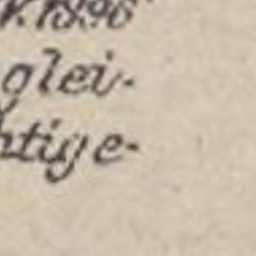 1896
glei-
htige-